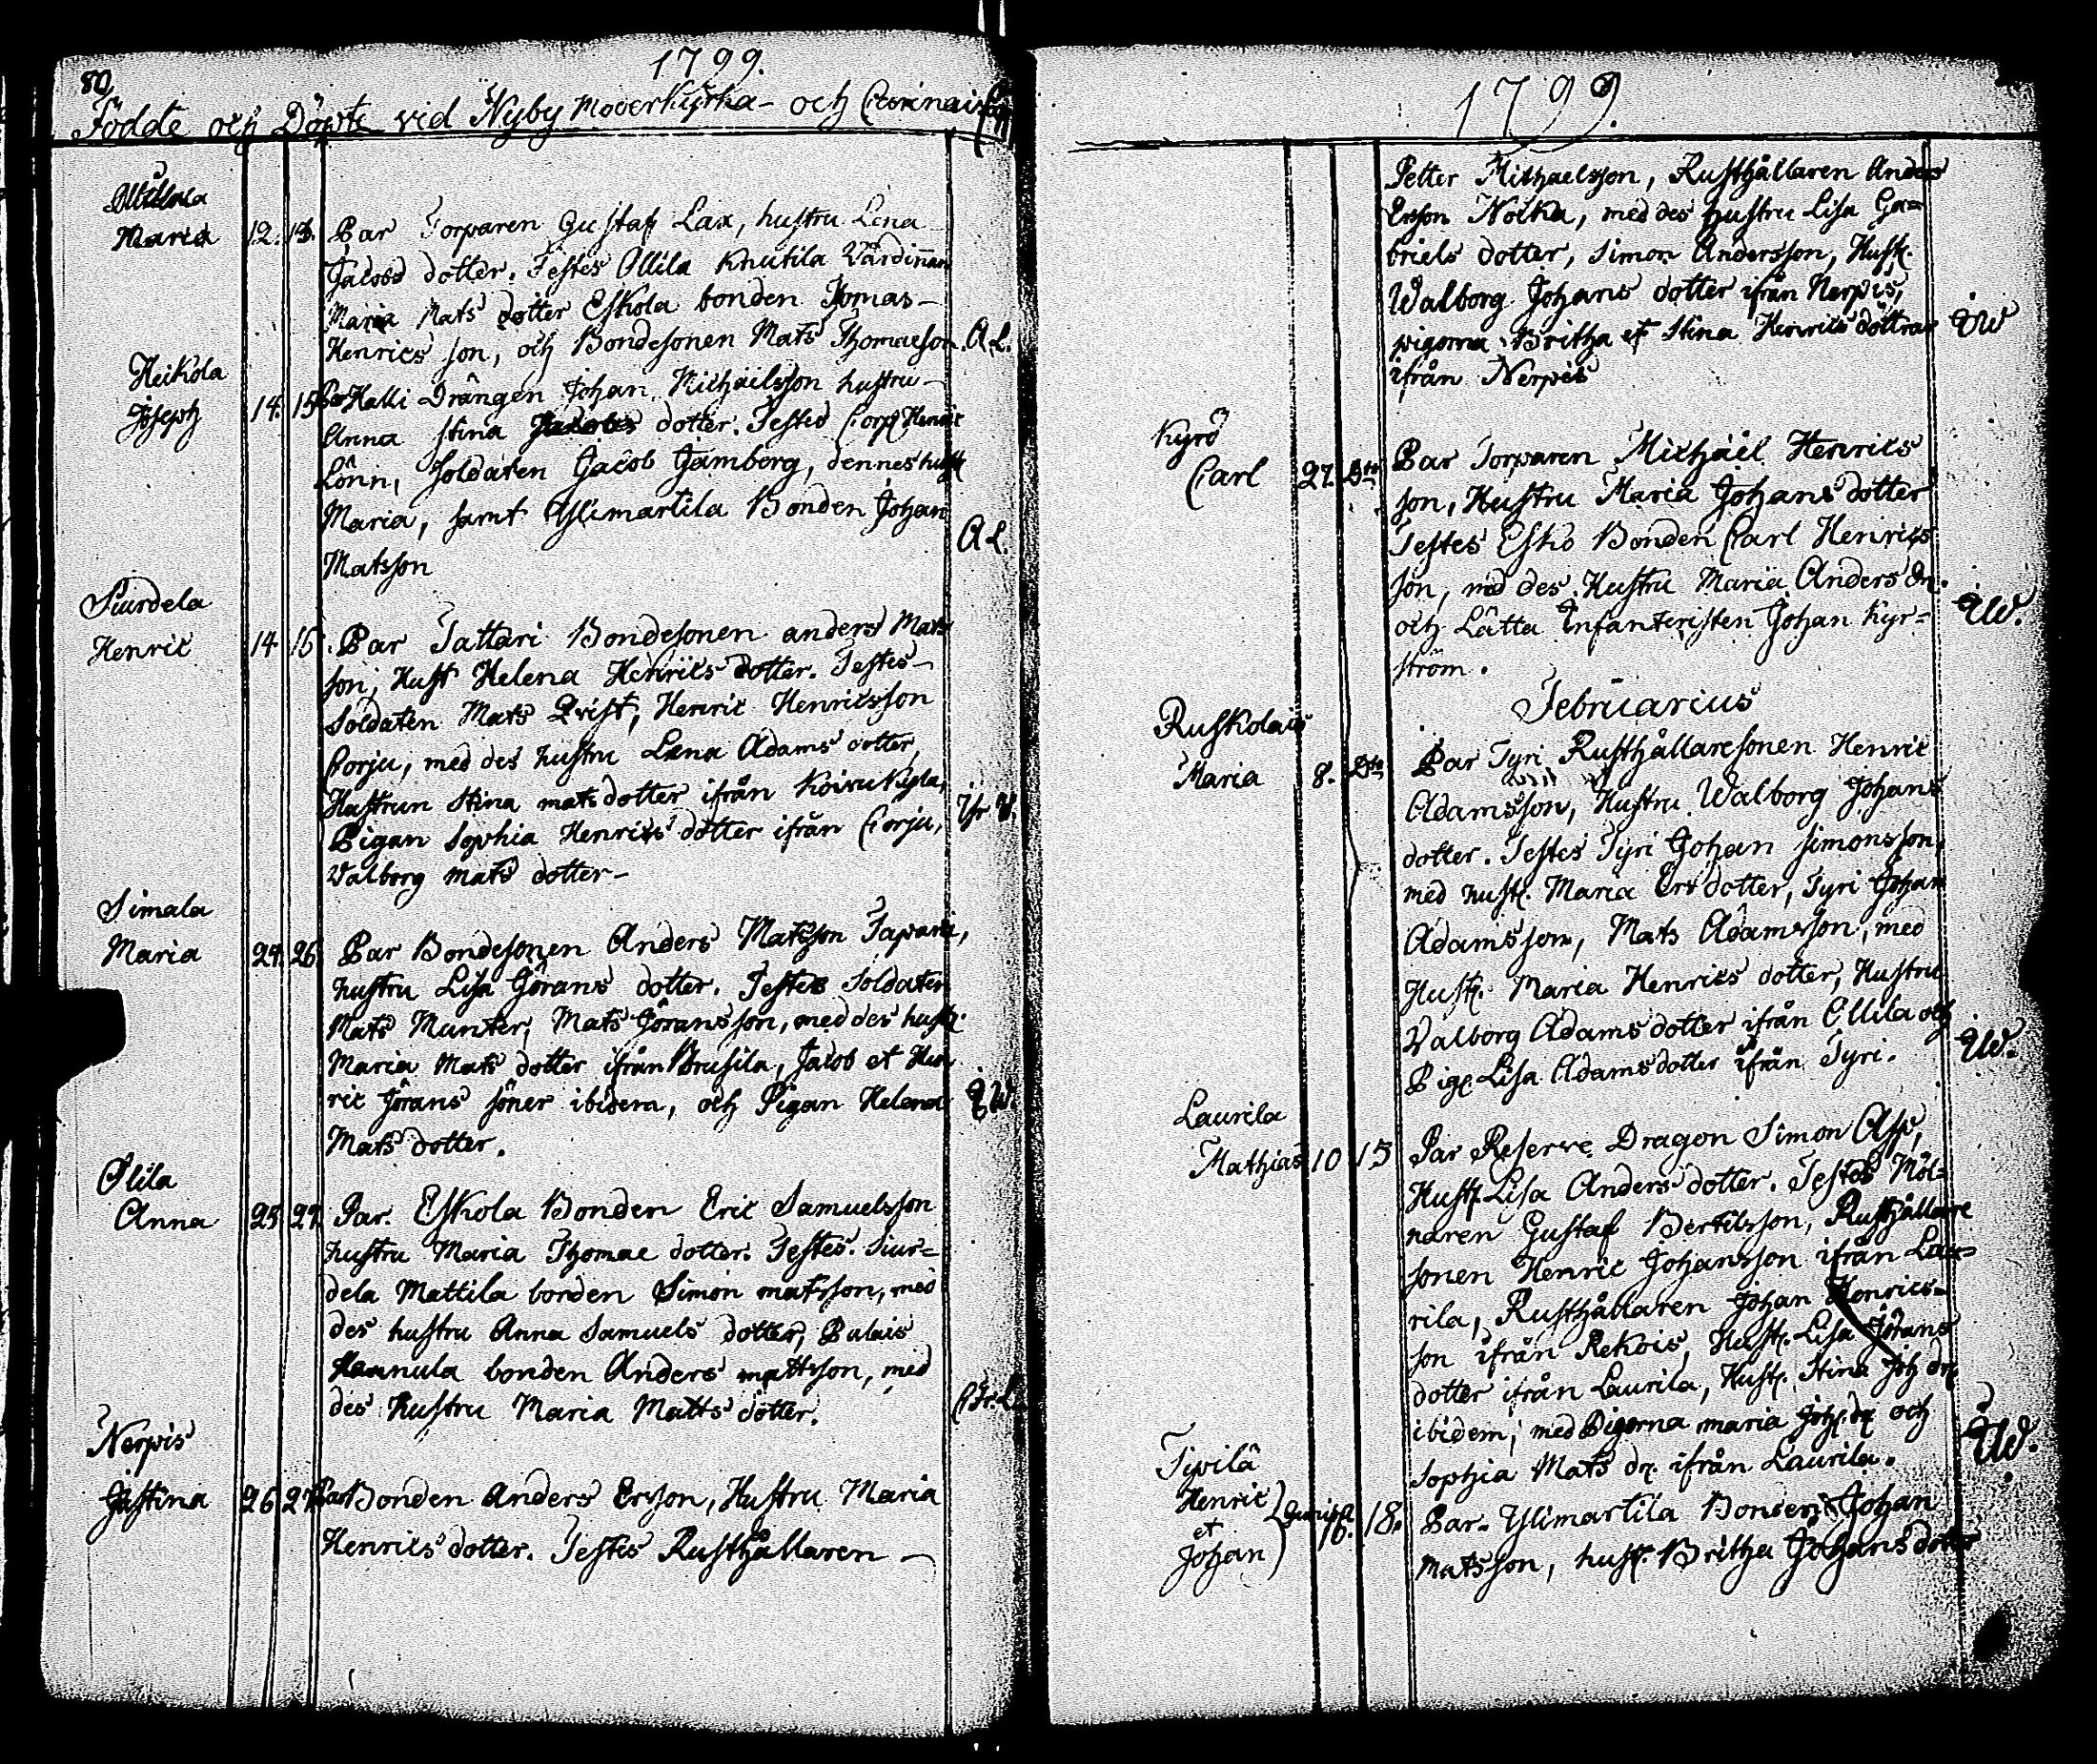 80.
1799.
Födde och Döpte vid Nyby Moderkyrka- och
Maria 12. 13. Par Torparen Gustaf Lax, hustru Lena
Jacobs dotter. Testes Ollila Knutila Värdinnan
Maria Mats dotter Eskola bonden Tomas-
Henrics son, och Bondesonen Mats Thomaeson. A.L.
Heikola
Joseph 14. 15. Par Halli Drängen Johan Michaelsson hustru-
Anna Stina Jacobs dotter. Testes Corp Henric
Lönn, Soldaten Jacob Gamberg, dennes hust
Maria, samt Ylimartila Bonden Johan
Matsson A L.
Siurdela
Henric 14 15. Par Tattari Bondesonen anders Mats
son, Hust Helena Henrics dotter. Testes-
Soldaten Mats Qvist, Henric Henricsson
Corju, med des hustru Lena Adams dotter,
Hustrun Stina mats dotter ifrån Koivukyla,
Pigan Sophia Henrics dotter ifrån Corju,
Valborg mats dotter-
Simala
Maria 24. 26. Par Bondesonen Anders Matsson Tapani,
hustru Lisa Görans dotter. Testes Soldaten
Mats Munter, Mats Göransson, med des hust.
Maria Mats dotter ifrån Brusila, Jacob et Hen
ric Jörans söner ibidem, och Pigan Helena
Mats dotter.
Olila
Anna 25 27. Par. Eskola Bonden Eric Samuelsson
hustru Maria Thomae dotter. Testes. Siur=
dela Mattila bonden Simon matsson, med
des hustru Anna Samuels dotter, Palais
Hannula bonden Anders mattsson, med
des Hustru Maria Matts dotter.
Nerpis
Justina 26 27 Par Bonden Anders Ersson, Hustru Maria
Henrics dotter. Testes Rusthållaren -
1799.
Petter Michaelsson, Rusthållaren Anders
Erson Nokka, med des hustru Lisa Ga=
briels dotter, Simon Andersson, Hust.
Walborg Johans dotter ifrån Nerpis,
pigorna Britha et Stina Henrics döttrar
ifrån Nerpis
Kyrö
Carl 27. Dto Par Torparen Michaël Henrics
son, Hustru Maria Johans dotter
Testes Esko Bonden Carl Henrics
son, med des Hustru Maria Anders dr.
och Lätta Infanteristen Johan Kyr=
ström.
Februarius
Ruskolais
Maria 8. Dto Par Tyri Rusthållaresonen Henric
Adamsson, Hustru Walborg Johans
dotter. Testes Tyri Johan Simonsson,
med hust. Maria Ers dotter, Tyri Johan
Adamsson, Mats Adamsson, med
Hust. Maria Henrics dotter, Hustru
Valborg Adams dotter ifrån Ollila och
Pig. Lisa Adamsdotter ifrån Tyri.
Laurila
Mathias 10 13 Par Reserve Dragon Simon Asp,
Hust. Lisa Anders dotter. Testes Möl=
naren Gustaf Bertilsson, Rusthållare
sonen Henric Johansson ifrån Lau=
rila, Rusthållaren Johan Henrics=
son ifrån Rekois, Hust. Lisa Jörans
dotter ifrån Laurila, Hust. Stina Joh dr.
ibidem, med Pigorna maria Joh. dr. och
Sophia Mats dr. ifrån Laurila.
Tipilä
Henric
et
Johan } 16. 18. Par. Ylimartila Bonden Johan
Matsson, hust. Britha Johansdotter